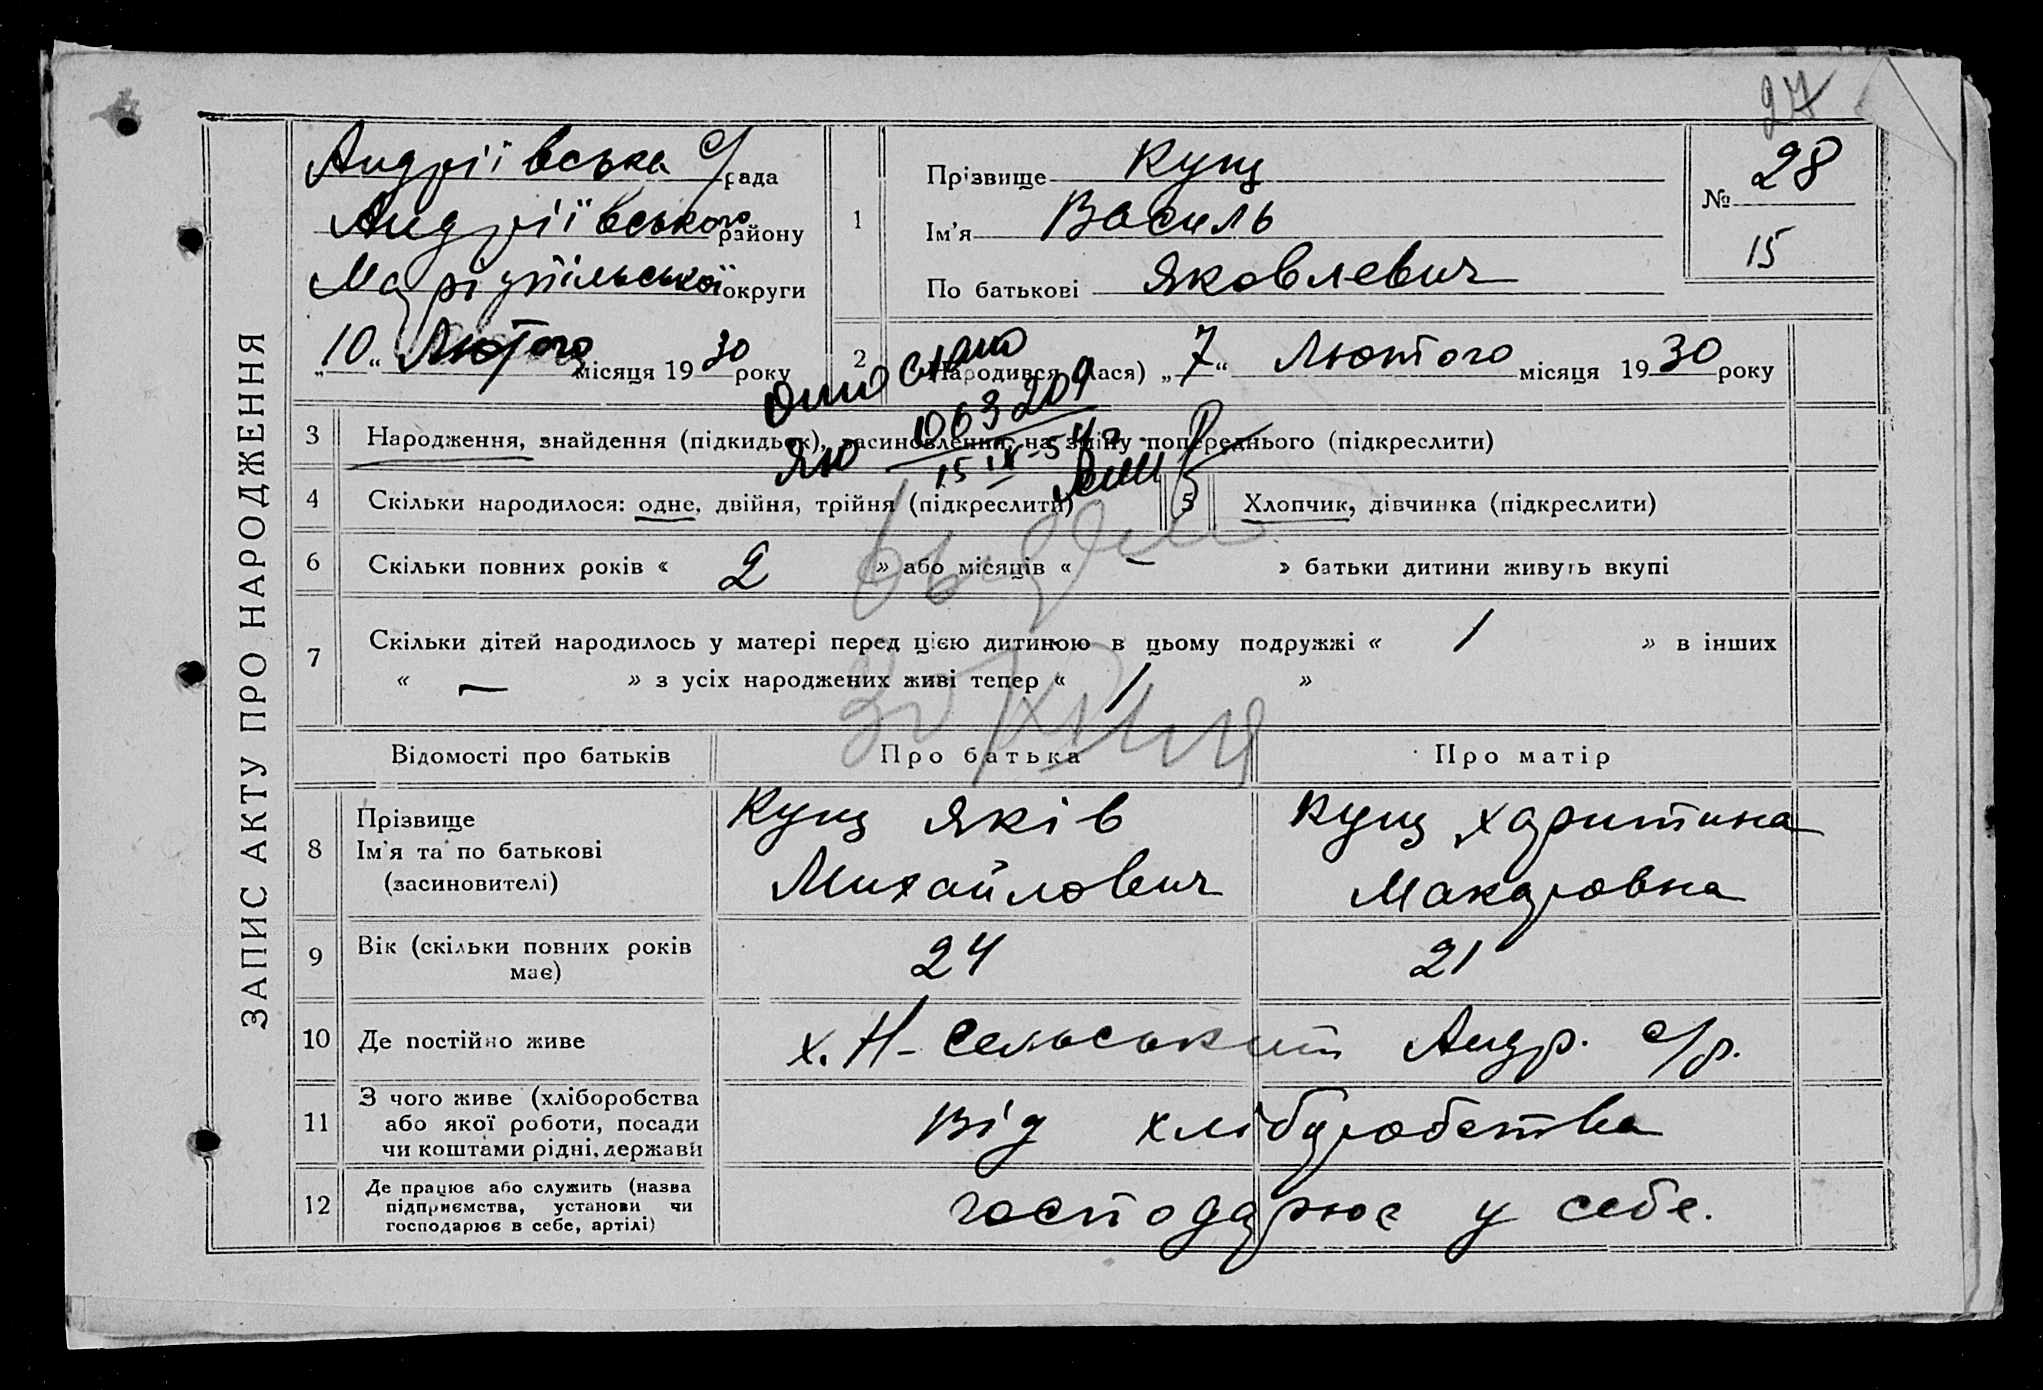 27
ЗАПИС АКТУ ПРО НАРОДЖЕННЯ
Андріївська с/рада
Андріївського району
Маріупільської округи
„10“ Лютого місяця 1930 року
1
Прізвище Кущ
Ім'я Василь
По батькові Яковлевич
№ 28
15
2 Народився (лася) „7“ Лютого місяця 1930 року
ЯЮ 1063209
15 IX-54 г.
3 Народження, знайдення (підкидьок), засиновлення, на зміну попереднього (підкреслити)
4 Скільки народилося: одне, двійня, трійня (підкреслити)
5 Хлопчик, дівчинка (підкреслити)
6 Скільки повних років « 2 » або місяців « – » батьки дитини живуть вкупі
7 Скільки дітей народилось у матері перед цією дитиною в цьому подружжі « 1 » в інших
« — » з усіх народжених живі тепер « 1 »
Відомості про батьків Про батька Про матір
8 Прізвище
Ім'я та по батькові
(засиновителі)
Кущ Яків
Михайлович
Кущ Харитина
Макаровна
9 Вік (скільки повних років
має)
24 21
10 Де постійно живе х. Н-Сельський Андр. с/р.
11 З чого живе (хліборобства
або якої роботи, посади
чи коштами рідні, держави
Від хліборобства
12 Де працює або служить (назва
підприємства, установи чи
господарює в себе, артілі)
господарює у себе.